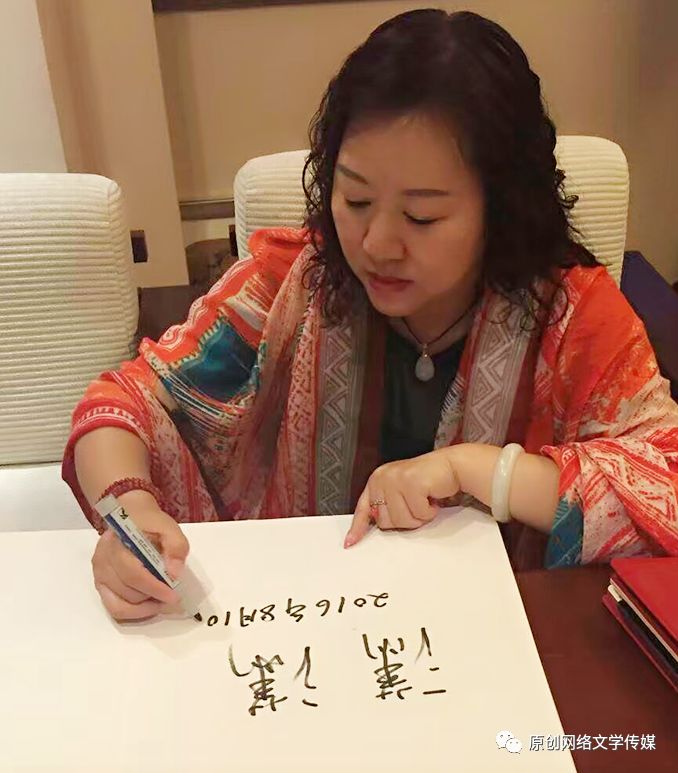 潇潇
2016年8月10
原创网络文学传媒